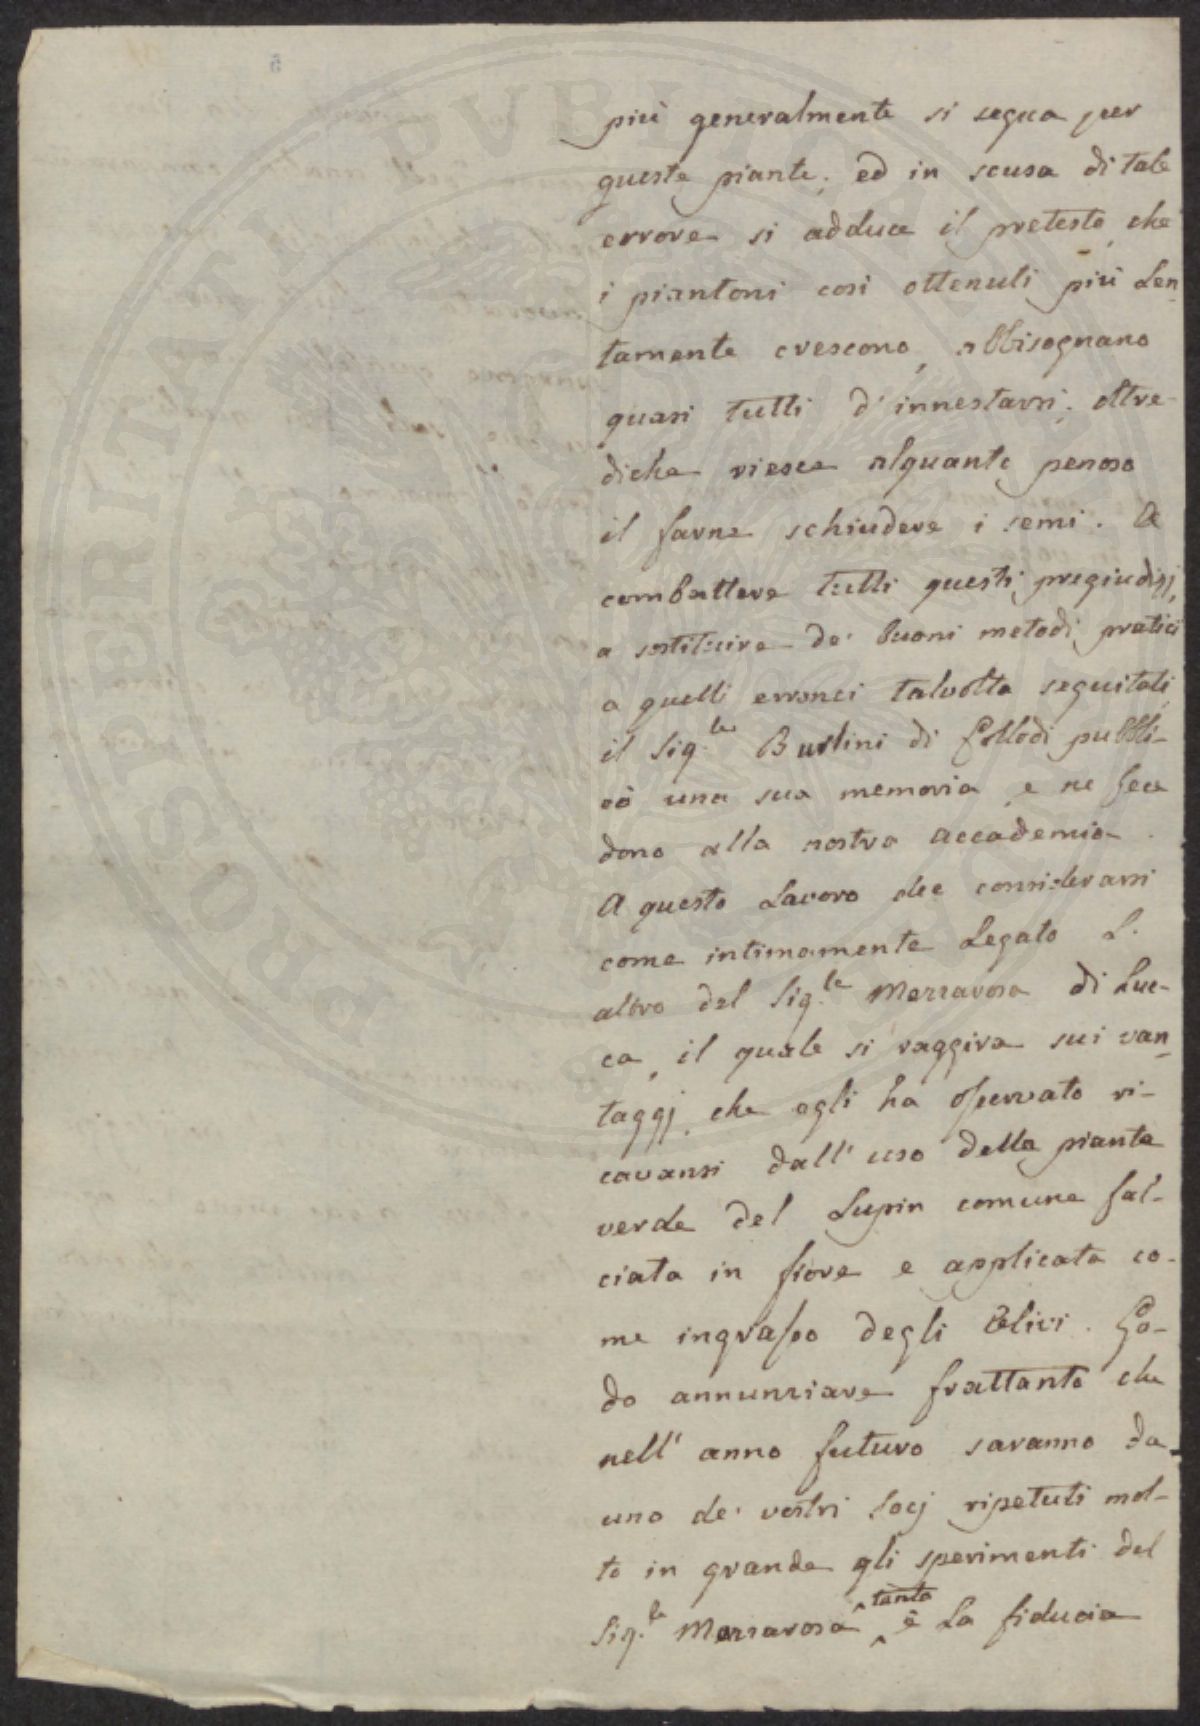 più generalmente si segua per
queste piante; ed in scusa di tale
errore si adduce il pretesto, che
i piantoni così ottenuti più Len-
tamente crescono, abbisognano
quasi tutti d'innestarsi; oltre-
diche riesce alquante penoso
il farne schiudere i semi. A
combattere tutti questi pregiudizj,
a sostituire de' buoni metodi pratici
a quelli erronei talvolta seguitati
il Sig.le Burlini di Collodi pubbli-
cò una sua memoria, e ne fece
dono alla nostra Accademia.
A questo Lavoro dee considerarsi
come intimamente Legato L.
altro del Sig.le Mazzarosa di Luc-
ca, il quale si raggira sui van-
taggj, che egli ha osservato ri-
cavansi dall'uso della pianta
verde del Lupin comune fal-
ciata in fiore e applicata co-
me ingrasso degli Olivi. Go-
do annunziare frattanto che
nell'anno futuro saranno da
uno de' vostri Socj ripetuti mol-
to in grande gli sperimenti del
Sig.le Mazzarosa, tanta è La fiducia
PROSPERITATI PVBLICAE